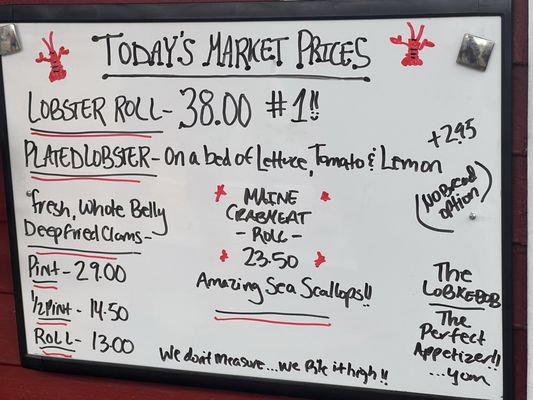 TODAY'S MARKET PRICES
LOBSTER ROLL - 38.00 #1!!
+2.95
PLATED LOBSTER - On a bed of Lettuce, Tomato & Lemon
(No Bread option)
fresh, Whole Belly
Deep fried Clams -
Pint - 29.00
1/2 Pint - 14.50
ROLL - 13.00
MAINE
CRABMEAT
- ROLL -
23.50
Amazing Sea Scallops!!
The
LOBKEBOB
The
Perfect
Appetizer!!
...yom
We don't measure...We Pile it high!!